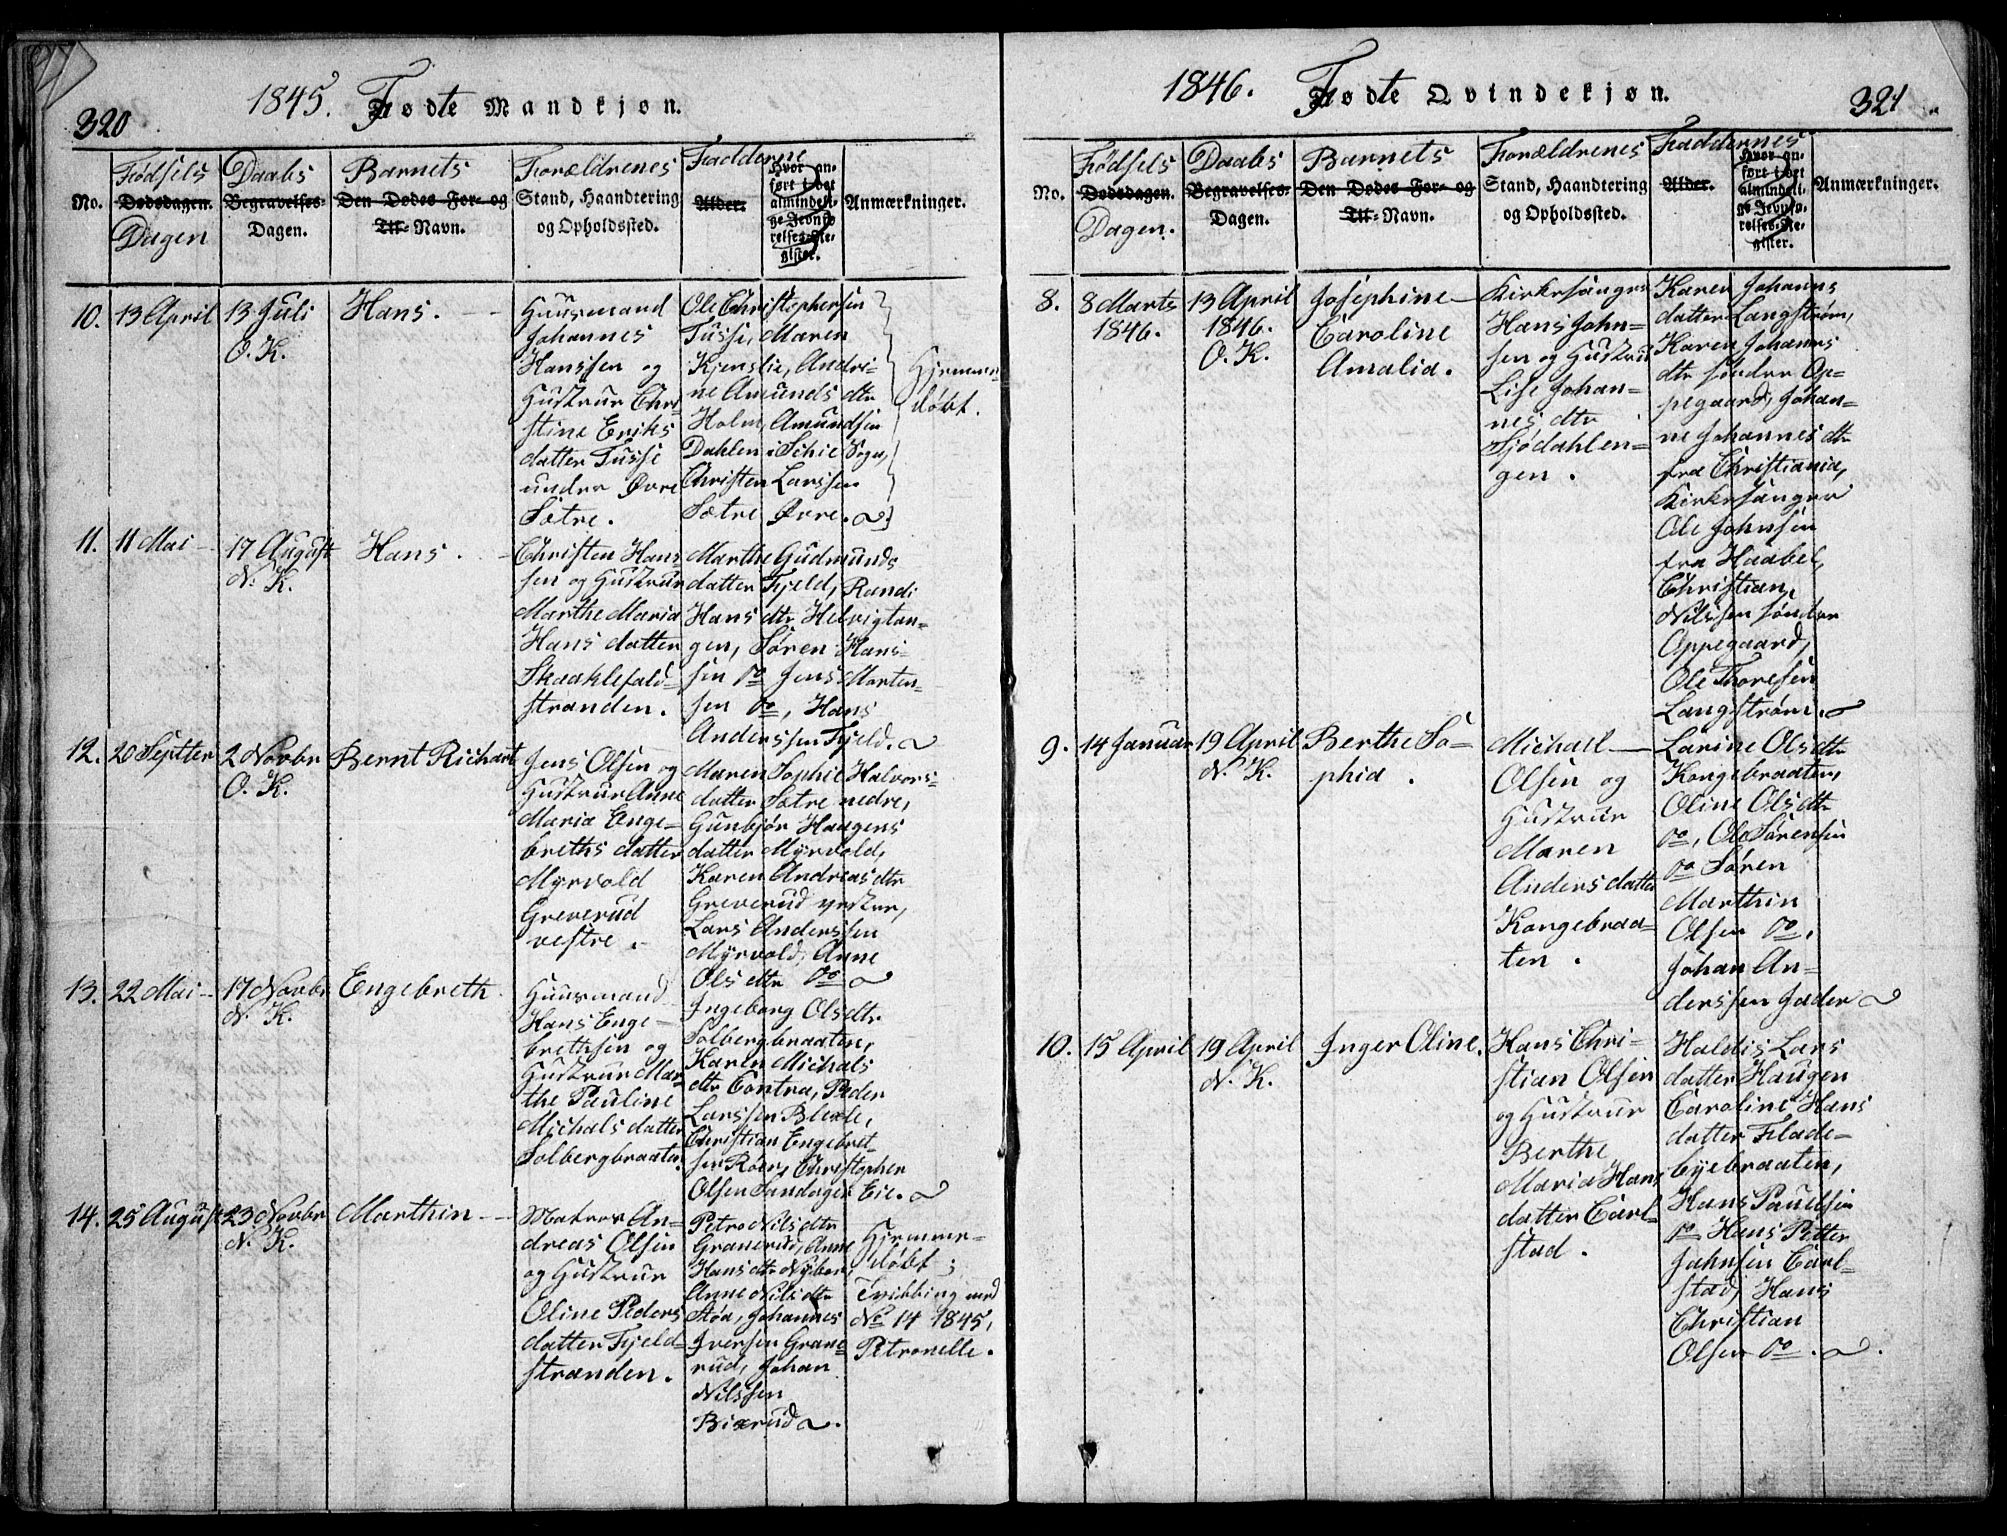 320
1845. Fødte Mandkjøn.
No.
Fødsels
Dødsdagen.
Dagen
Daabs
Begravelses-
Dagen.
Barnets
Den Dødes For- og
Til-Navn.
Forældrenes
Stand, Haandtering
og Opholdssted.
Fadderne
Alder.
Hvor an-
ført i det
almindeli-
ge Jevnfø-
relses-Re-
gister.
Anmærkninger.
10. 13 April
13 Juli
O. K.
Hans.
Huusmand
Johannes
Hanssen og
Hustrue Chri-
stine Eriks
datter Tusse
under Øvre
Sætre.
Ole Christophersen
Tusse, Maren
Kjenslie, Andri-
ne Amunds dtr
Holm, Amundsen
Dahlen i Schie Sogn,
Christen Larssen
Sætre Øvre.
Hjemme-
døbt.
11. 11 Mai
17 August
N. K.
Hans.
Christen Hans-
sen og Hustrue
Marthe Maria
Hans datter
Skaahlefald-
stranden.
Marthe Gudmunds
datter Fjeld, Randi
Hans dtr Helvigtan-
gen, Søren Hans-
sen Do Jens Morten-
sen Do, Hans
Anderssen Fjeld.
12. 20 Septter
2 Novbr
O. K.
Bernt Richart
Jens Olsen og
Hustrue Anne
Maria Enge-
breths datter
Myrvold
Greverud
vestre.
Maren Sophie Halvors-
datter Sætre nedre,
Gunbjør Haagens
datter Myrvold,
Karen Andreas dtr
Greverud vestre,
Lars Anderssen
Myrvold, Anne
Ols dtr Do
13. 22 Mai
17 Novbr
N. K.
Engebreth
Huusmand
Hans Enge-
brethsen og
Hustrue Mar-
the Pauline
Michals datter
Solbergbraaten
Ingeborg Ols dtr
Solbergbraaten,
Karen Michals
dtr Contra, Peder
Larssen Blexle,
Christian Engebret-
sen Røer, Christopher
Olsen Sundagen Eie.
14. 25 August
23 Novbr
N. K.
Marthin
Matros An-
dreas Olsen
og Hustrue
Eline Peders
datter Fjeld-
stranden.
Petra Nils dtr
Granerud, Anne
Hans dtr Nyber,
Anne Nils dtr
Støa, Johannes
Iversen Grane-
rud, Johan
Nilssen
Bixrud.
Hjemme-
døbt;
Tvilling med
No 14 1845,
Petronelle.
1846. Fødte Qvindekjøn.
321
No.
Fødsels
Dødsdagen.
Dagen.
Daabs
Begravelses-
Dagen.
Barnets
Den Dødes For- og
Til-Navn.
Forældrenes
Stand, Haandtering
og Opholdssted.
Faddernes
Alder.
Hvor an-
ført i det
almindeli-
ge Jevnfø-
relses-Re-
gister.
Anmærkninger.
8. 8 Marts
1846.
13 April
1846.
O. K.
Josephine
Caroline
Amalia.
Kirkesanger
Hans John-
sen og Hustrue
Lise Johan-
nes dtr
Sjødahlen-
gen.
Karen Johanns
datter Langstrøm,
Karen Johanns
dtr søndre Op-
pegaard, Johan-
ne Johannes dtr
fra Christiania,
Kirkesanger
Ole Johnsen
fra Haabel,
Christian
Nilssen søndre
Oppegaard,
Ole Thoresen
Langstrøm.
9. 14 Januar
19 April
N. K.
Berthe So-
phia.
Michael
Olsen og
Hustrue
Maren
Anders datter
Kongebraa-
ten.
Larine Ols dtr
Kongebraaten,
Oline Ols dtr
Do, Ole Sørensen
Do Søren
Marthin
Olsen Do,
Johan An-
derssen Jader
10. 15 April
19 April
N. K.
Inger Oline.
Hans Chri-
stian Olsen
og Hustrue
Berthe
Maria Hans
datter Carl-
stad.
Haldis Lars
datter Haugen
Caroline Hans
datter Flade-
byebraaten,
Hans Paulsen
Do Hans Petter
Johnsen Carl-
stad, Hans
Christian
Olsen Do.